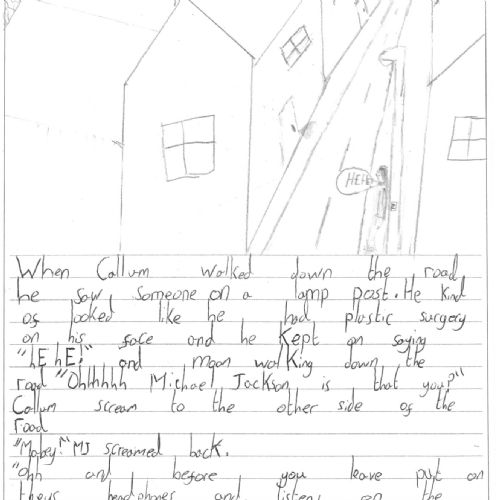 HEHE
When Callum walked down the road
he saw someone on a lamp post. He kind
of looked like he had plastic surgery
on his face and he kept on saying
"hE hE!" and moon walking down the
road "Ohhhhhh Michael Jackson is that you?"
Callum scream to the other side of the
road
"Mabey!" MJ screamed back.
"Ohh and before you leave put on
headphones and listen on the